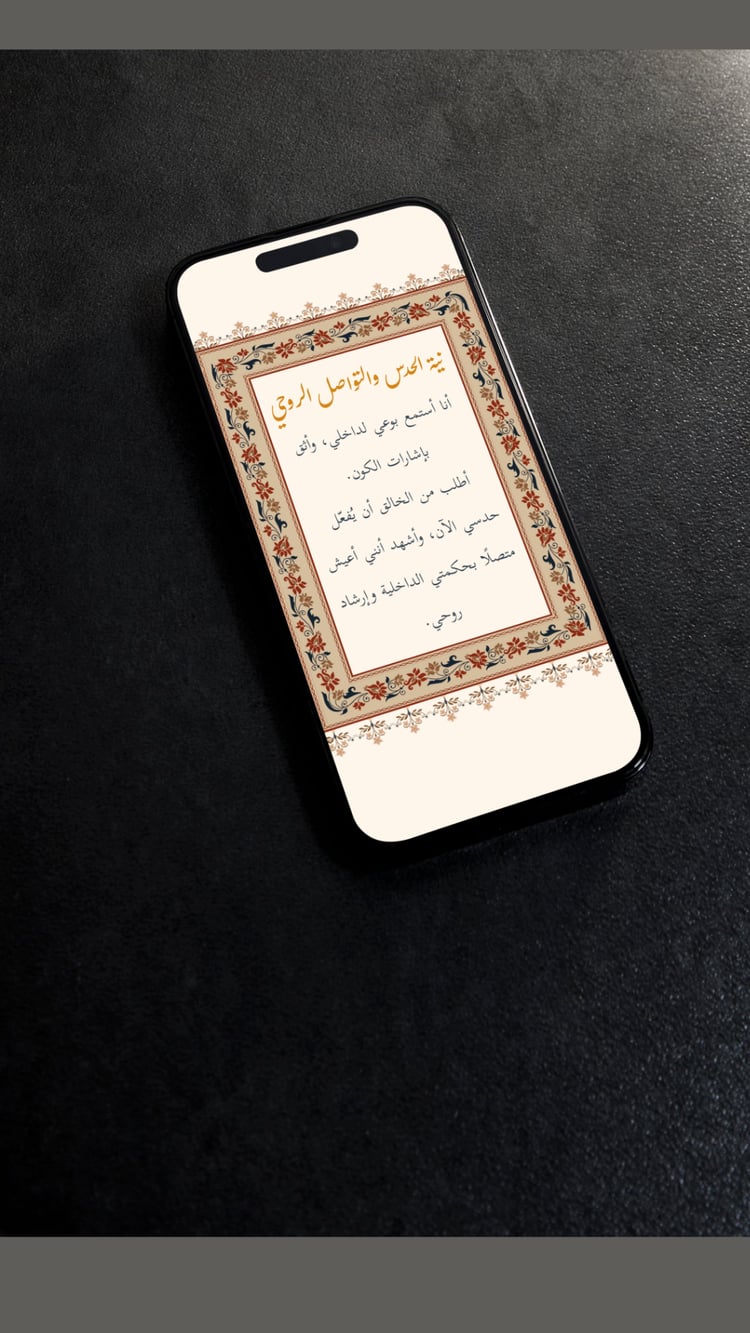 نية الحدس والتواصل الروحي
أنا أستمع بوعي لداخلي، وأثق
بإشارات الكون.
أطلب من الخالق أن يُفعّل
حدسي الآن، وأشهد أنني أعيش
متصلًا بحكمتي الداخلية وإرشاد
روحي.